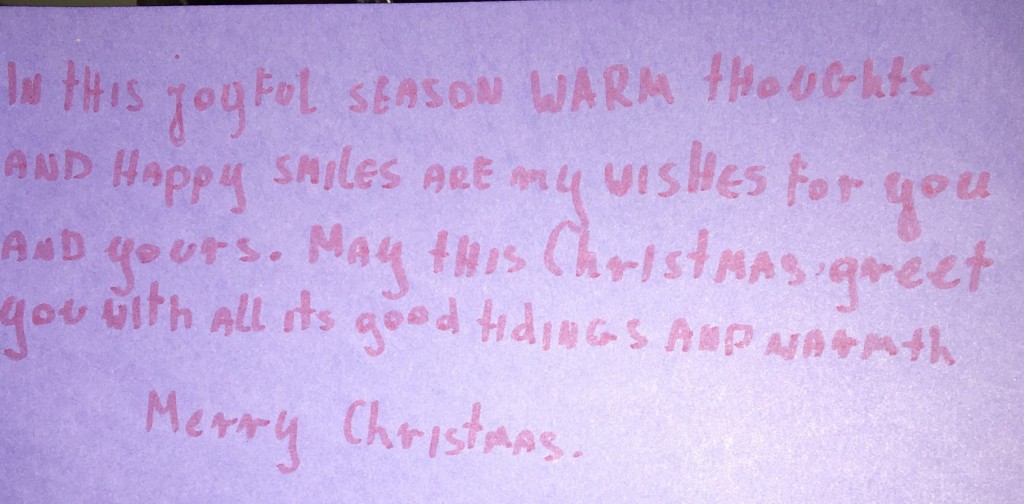 In this joyful season warm thoughts
and Happy smiles are my wishes for you
and yours. May this Christmas greet
you with all its good tidings and warmth
Merry Christmas.